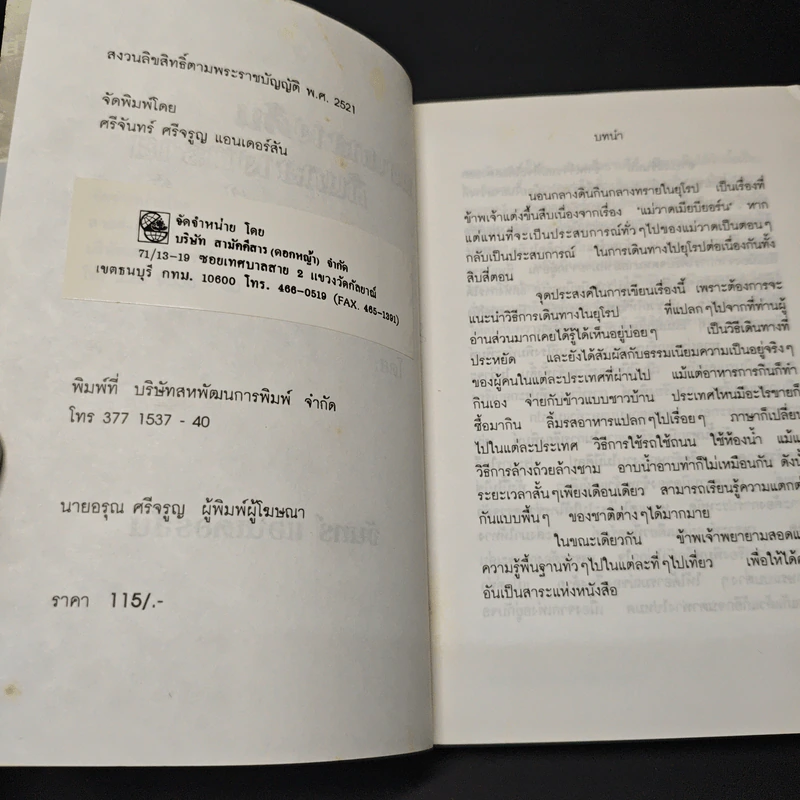 สงวนลิขสิทธิ์ตามพระราชบัญญัติ พ.ศ. 2521
จัดพิมพ์โดย
ศรีจันทร์ ศรีจรูญ แอนเดอร์สัน
จัดจำหน่าย โดย
บริษัท สามัคคีสาร (ดอกหญ้า) จำกัด
71/13-19 ซอยเทศบาลสาย 2 แขวงวัดกัลยาณ์
เขตธนบุรี กทม. 10600 โทร. 466-0519 (FAX. 465-1391)
พิมพ์ที่ บริษัทสหพัฒนการพิมพ์ จำกัด
โทร 377 1537 - 40
นายอรุณ ศรีจรูญ ผู้พิมพ์ผู้โฆษณา
ราคา 115/.-
บทนำ
นอนกลางดินกินกลางทรายในยุโรป เป็นเรื่องที่
ข้าพเจ้าแต่งขึ้นสืบเนื่องจากเรื่อง "แม่วาดเมียบียอร์น" หาก
แต่แทนที่จะเป็นประสบการณ์ทั่วๆไปของแม่วาดเป็นตอนๆ
กลับเป็นประสบการณ์ ในการเดินทางไปยุโรปต่อเนื่องกันทั้ง
สิบสี่ตอน
จุดประสงค์ในการเขียนเรื่องนี้ เพราะต้องการจะ
แนะนำวิธีการเดินทางในยุโรป ที่แปลกๆไปจากที่ท่านผู้
อ่านส่วนมากเคยได้รู้ได้เห็นอยู่บ่อยๆ เป็นวิธีเดินทางที่
ประหยัด และยังได้สัมผัสกับธรรมเนียมความเป็นอยู่จริงๆ
ของผู้คนในแต่ละประเทศที่ผ่านไป แม้แต่อาหารการกินก็ทำ
กินเอง จ่ายกับข้าวแบบชาวบ้าน ประเทศไหนมีอะไรขายก็
ซื้อมากิน ลิ้มรสอาหารแปลกๆไปเรื่อยๆ ภาษาก็เปลี่ยน
ไปในแต่ละประเทศ วิธีการใช้รถใช้ถนน ใช้ห้องน้ำ
วิธีการล้างถ้วยล้างชาม อาบน้ำอาบท่าก็ไม่เหมือนกัน
ระยะเวลาสั้นๆเพียงเดือนเดียว สามารถเรียนรู้ความ
กันแบบพื้นๆ ของชาติต่างๆได้มากมาย
ในขณะเดียวกัน ข้าพเจ้าพยายาม
ความรู้พื้นฐานทั่วๆไปในแต่ละที่ๆไปเที่ยว เพื่อให้ได้
อันเป็นสาระแห่งหนังสือ